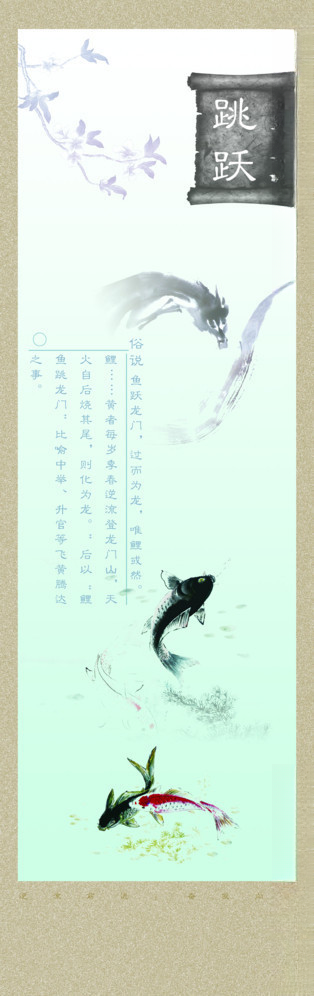 跳跃
俗说鱼跃龙门，过而为龙，唯鲤或然。
鲤……黄者每岁季春逆流登龙门山，天
火自后烧其尾，则化为龙。”后以“鲤
鱼跳龙门”比喻中举、升官等飞黄腾达
之事。